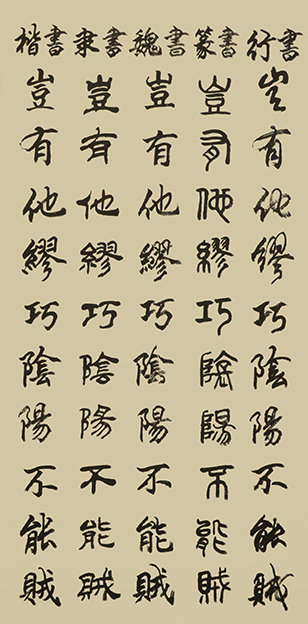 行書
豈有他繆巧陰陽不能賊
篆書
豈有他繆巧陰陽不能賊
魏書
豈有他繆巧陰陽不能賊
隶書
豈有他繆巧陰陽不能賊
楷書
豈有他繆巧陰陽不能賊